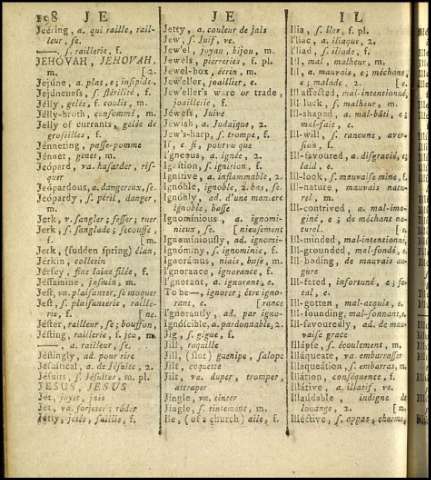 J E
Jeéring, a. qui raille, rail-
leur, se.
——, s. raillerie, f.
JEHOVAH, JEHOVAH.
m. [2.
Jejúne, a. plat, e; insipide,
Jejúneness, s. stérilité, f.
Jélly, gelée, f. coulis, m.
Jélly-broth, consommé, m.
Jelly of currants, gelée de
groseilles, f.
Jénneting, passe-pomme
Jénnet, genet, m.
Jéopard, va. hasarder, ris-
quer
Jéopardous, a. dangereux, se.
Jéopardy, s. péril, danger,
m.
Jerk, v. sangler; fesser; ruer
Jerk, s. sanglade; secousse,
f. [m.
Jerk, (sudden spring) élan,
Jérkin, colletin
Jérsey, fine laine filée, f.
Jéssamine, jasmin, m.
Jest, va. plaisanter, se moquer
Jest, s. plaisanterie, raille-
rie, f. [ne.
Jéster, railleur, se; bouffon,
Jésting, raillerie, f. jeu, m.
—, a. railleur, se.
Jéstingly, ad. pour rire
Jesuítical, a. de Jésuite, 2.
Jésuits, s. Jésuites, m. pl.
JESUS, JESUS
Jet, jayet, jais
Jet, va. forjeter; rôder
Jétty, jetée, saillie, f.
J E
Jetty, a. couleur de jais
Jew, s. Juif, ve.
Jéwel, joyau, bijou, m.
Jewels, pierreries, f. pl.
Jewel-box, écrin, m.
Jéweller, joaillier, e.
Jéweller's ware or trade,
joaillerie, f.
Jewess, Juive
Jéwish, a. Judaïque, 2.
Jew's-harp, s. trompe, f.
If, c. si, pourvu que
Igneous, a. ignée, 2.
Ignition, s. ignition, f.
Ignitive, a. inflammable, 2.
Ignóble, ignoble, 2. bas, se.
Ignóbly, ad. d'une maniere
ignoble, basse
Ignomínious, a. ignomi-
nieux, se. [nieusement
Ignomíniously, ad. ignomi-
Ignominy, s. ignominie, f.
Ignorámus, niais, buse, m.
I'gnorance, ignorance, f.
I'gnorant, a. ignorant, e.
To be—, ignorer, être igno-
rant, e. [rance
I'gnorantly, ad. par igno-
Ignóscible, a. pardonnable, 2.
Jig, s. gigue, f.
Jill, roquille
Jill, (slut) guenipe, salope
Jilt, coquette
Jilt, va. duper, tromper,
attraper
Jingle, vn. tinter
Jingle, s. tintement, m.
Ile, (of a church) aile, f.
I L
Ilia, s. iles, f. pl.
I'liac, a. iliaque, 2.
I'liad, s. iliade, f.
I'll, mal, malheur, m.
Ill, a. mauvais, e; méchant,
e; malade, 2.
Ill affected, mal-intentionné,
Ill-luck, s. malheur, m.
Ill-shaped, a. mal-bâti, e;
mal-fait, e.
Ill-will, s. rancune, aver-
sion, f.
Ill-favoured, a. disgracié, e;
laid, e.
Ill-look, s. mauvaise mine, f.
Ill-nature, mauvais natu-
rel, m.
Ill-contrived, a. mal-ima-
giné, e; de méchant na-
turel.
Ill-minded, mal-intentionné,
Ill-grounded, mal-fondé, e.
Ill-boding, de mauvais au-
gure
Ill-fated, infortuné, e; fa-
tal, e.
Ill-gotten, mal-acquis, e.
Ill-sounding, mal-sonnant, e.
Ill-favouredly, ad. de mau-
vaise grace
Illápse, s. écoulement, m.
Illáqueate, va. embarrasser
Illaqueátion, s. embarras, m.
Illátion, conséquence, f.
Illátive, a. illatif, ve.
Illaúdable, indigne de
louange, 2. [m.
Illéctive, s. appas, charme,